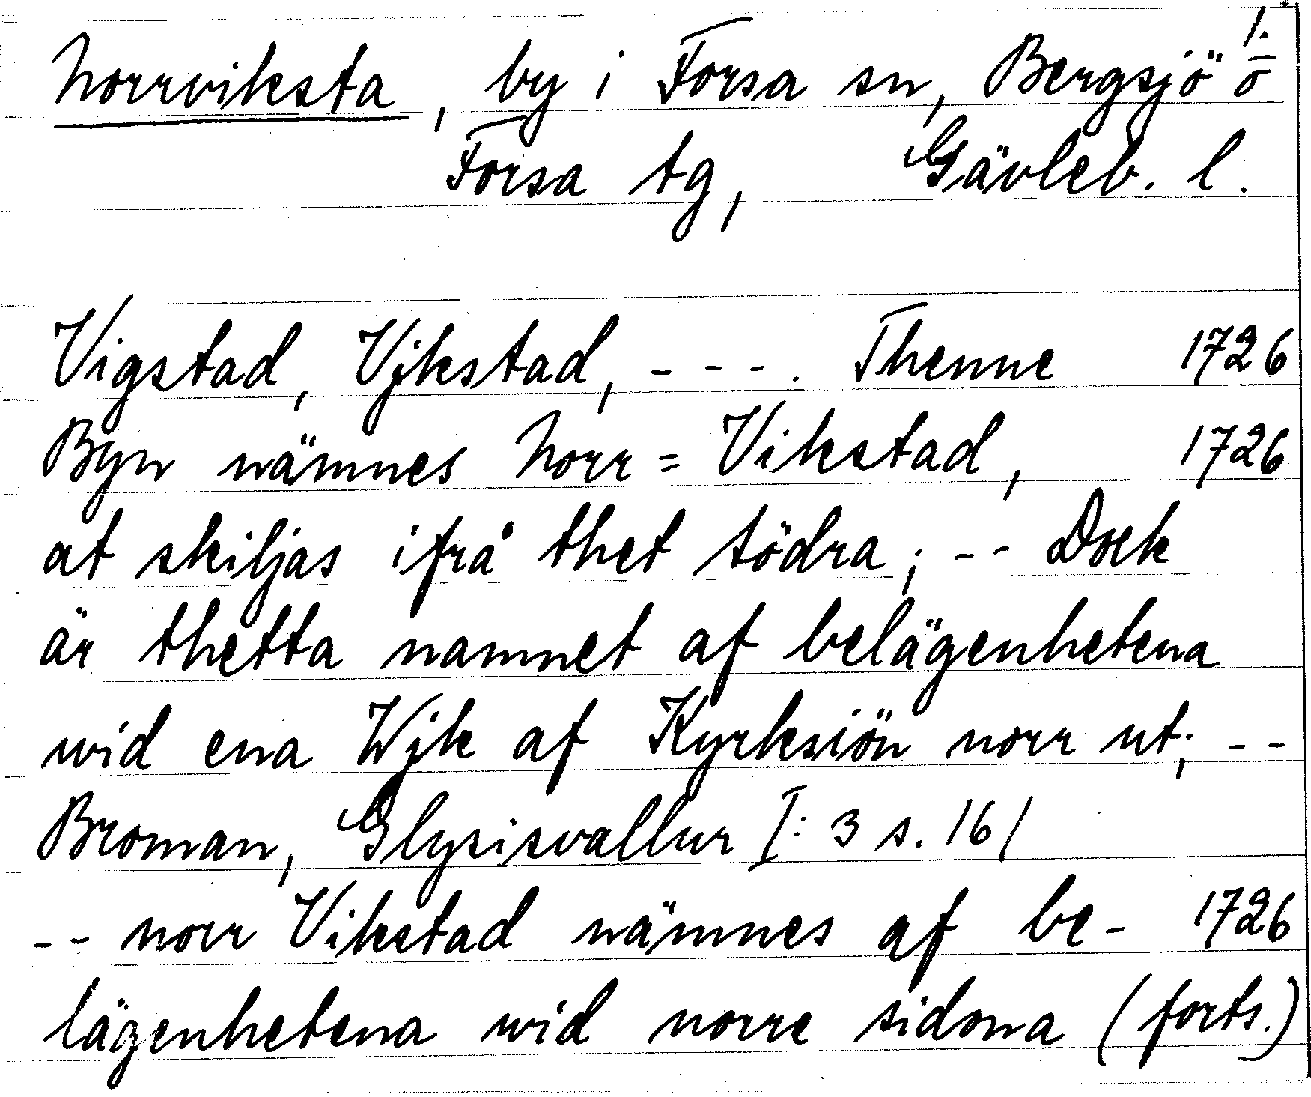 Norrviksta, by i Forsa sn, Bergsjö o 1.
Forsa tg, Gävleb. l.
Vigstad, Vjkstad, - - - . Thenne 1726
Byn nämnes Norr = Vikstad, 1726
at skiljas ifrå thet södra; - - Dock
är thetta namnet af belägenhetena
wid ena Wjk af Kyrksiön norr ut; - -
Broman, Glysisvallur I: 3 s. 161
- - norr Vikstad nämnes af be- 1726
lägenhetena wid norre sidona (forts.)